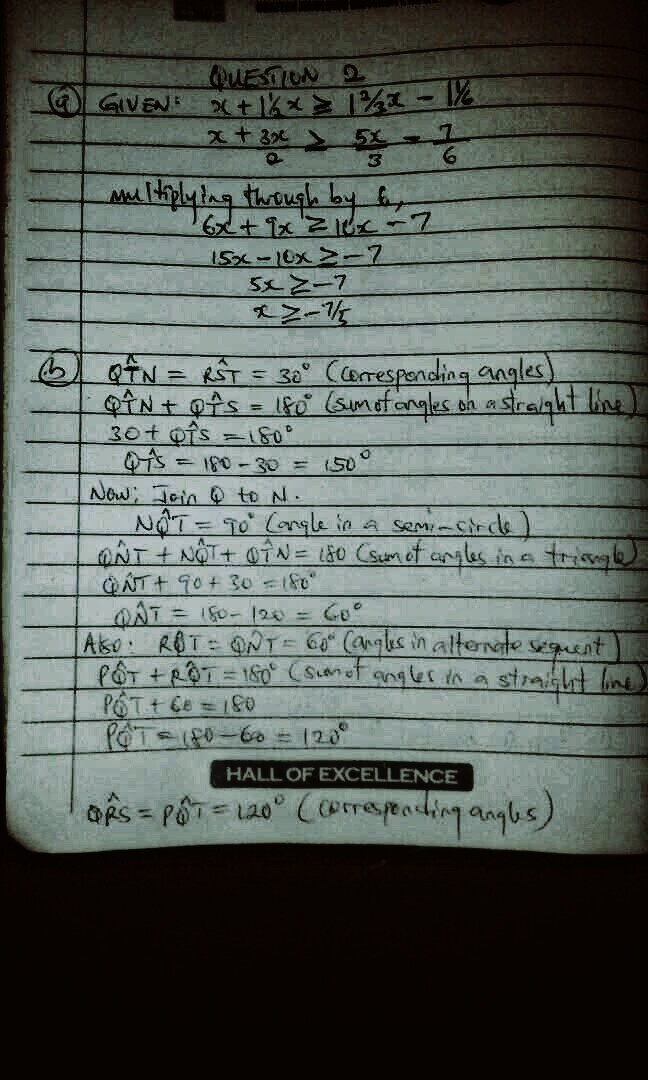 QUESTION 2
(a) GIVEN: x + 1½x ≥ 1⅔x - 1⅙
x + 3x/2 ≥ 5x/3 - 7/6
multiplying through by 6,
6x + 9x ≥ 10x - 7
15x - 10x ≥ -7
5x ≥ -7
x ≥ -7/5
(b) QT̂N = RŜT = 30° (corresponding angles)
QT̂N + QT̂S = 180° (sum of angles on a straight line)
30 + QT̂S = 180°
QT̂S = 180 - 30 = 150°
Now; Join Q to N.
NQ̂T = 90° (angle in a semi-circle)
QN̂T + NQ̂T + QT̂N = 180 (sum of angles in a triangle)
QN̂T + 90 + 30 = 180°
QN̂T = 180 - 120 = 60°
Also: RQ̂T = QN̂T = 60° (angles in alternate segment)
PQ̂T + RQ̂T = 180° (sum of angles in a straight line)
PQ̂T + 60 = 180
PQ̂T = 180 - 60 = 120°
HALL OF EXCELLENCE
QR̂S = PQ̂T = 120° (corresponding angles)